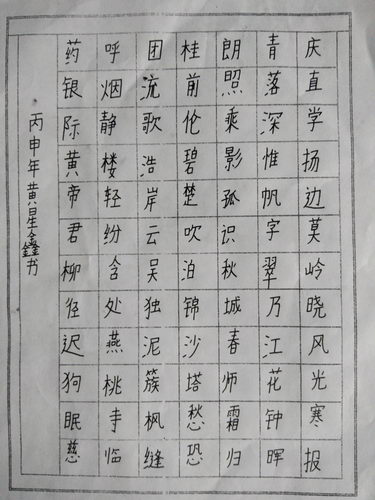 庆直学扬边莫岭晓风光寒报
青落深惟帆字翠乃江花钟晖
朗照乘影孤识秋城春师霜归
桂前伦碧楚吹泊锦沙塔愁恐
团流歌浩岸云吴独泥簇枫缝
呼烟静楼轻纷含处燕桃寺临
药银际黄帝君柳径迟狗眠慈
丙申年黄星鑫书